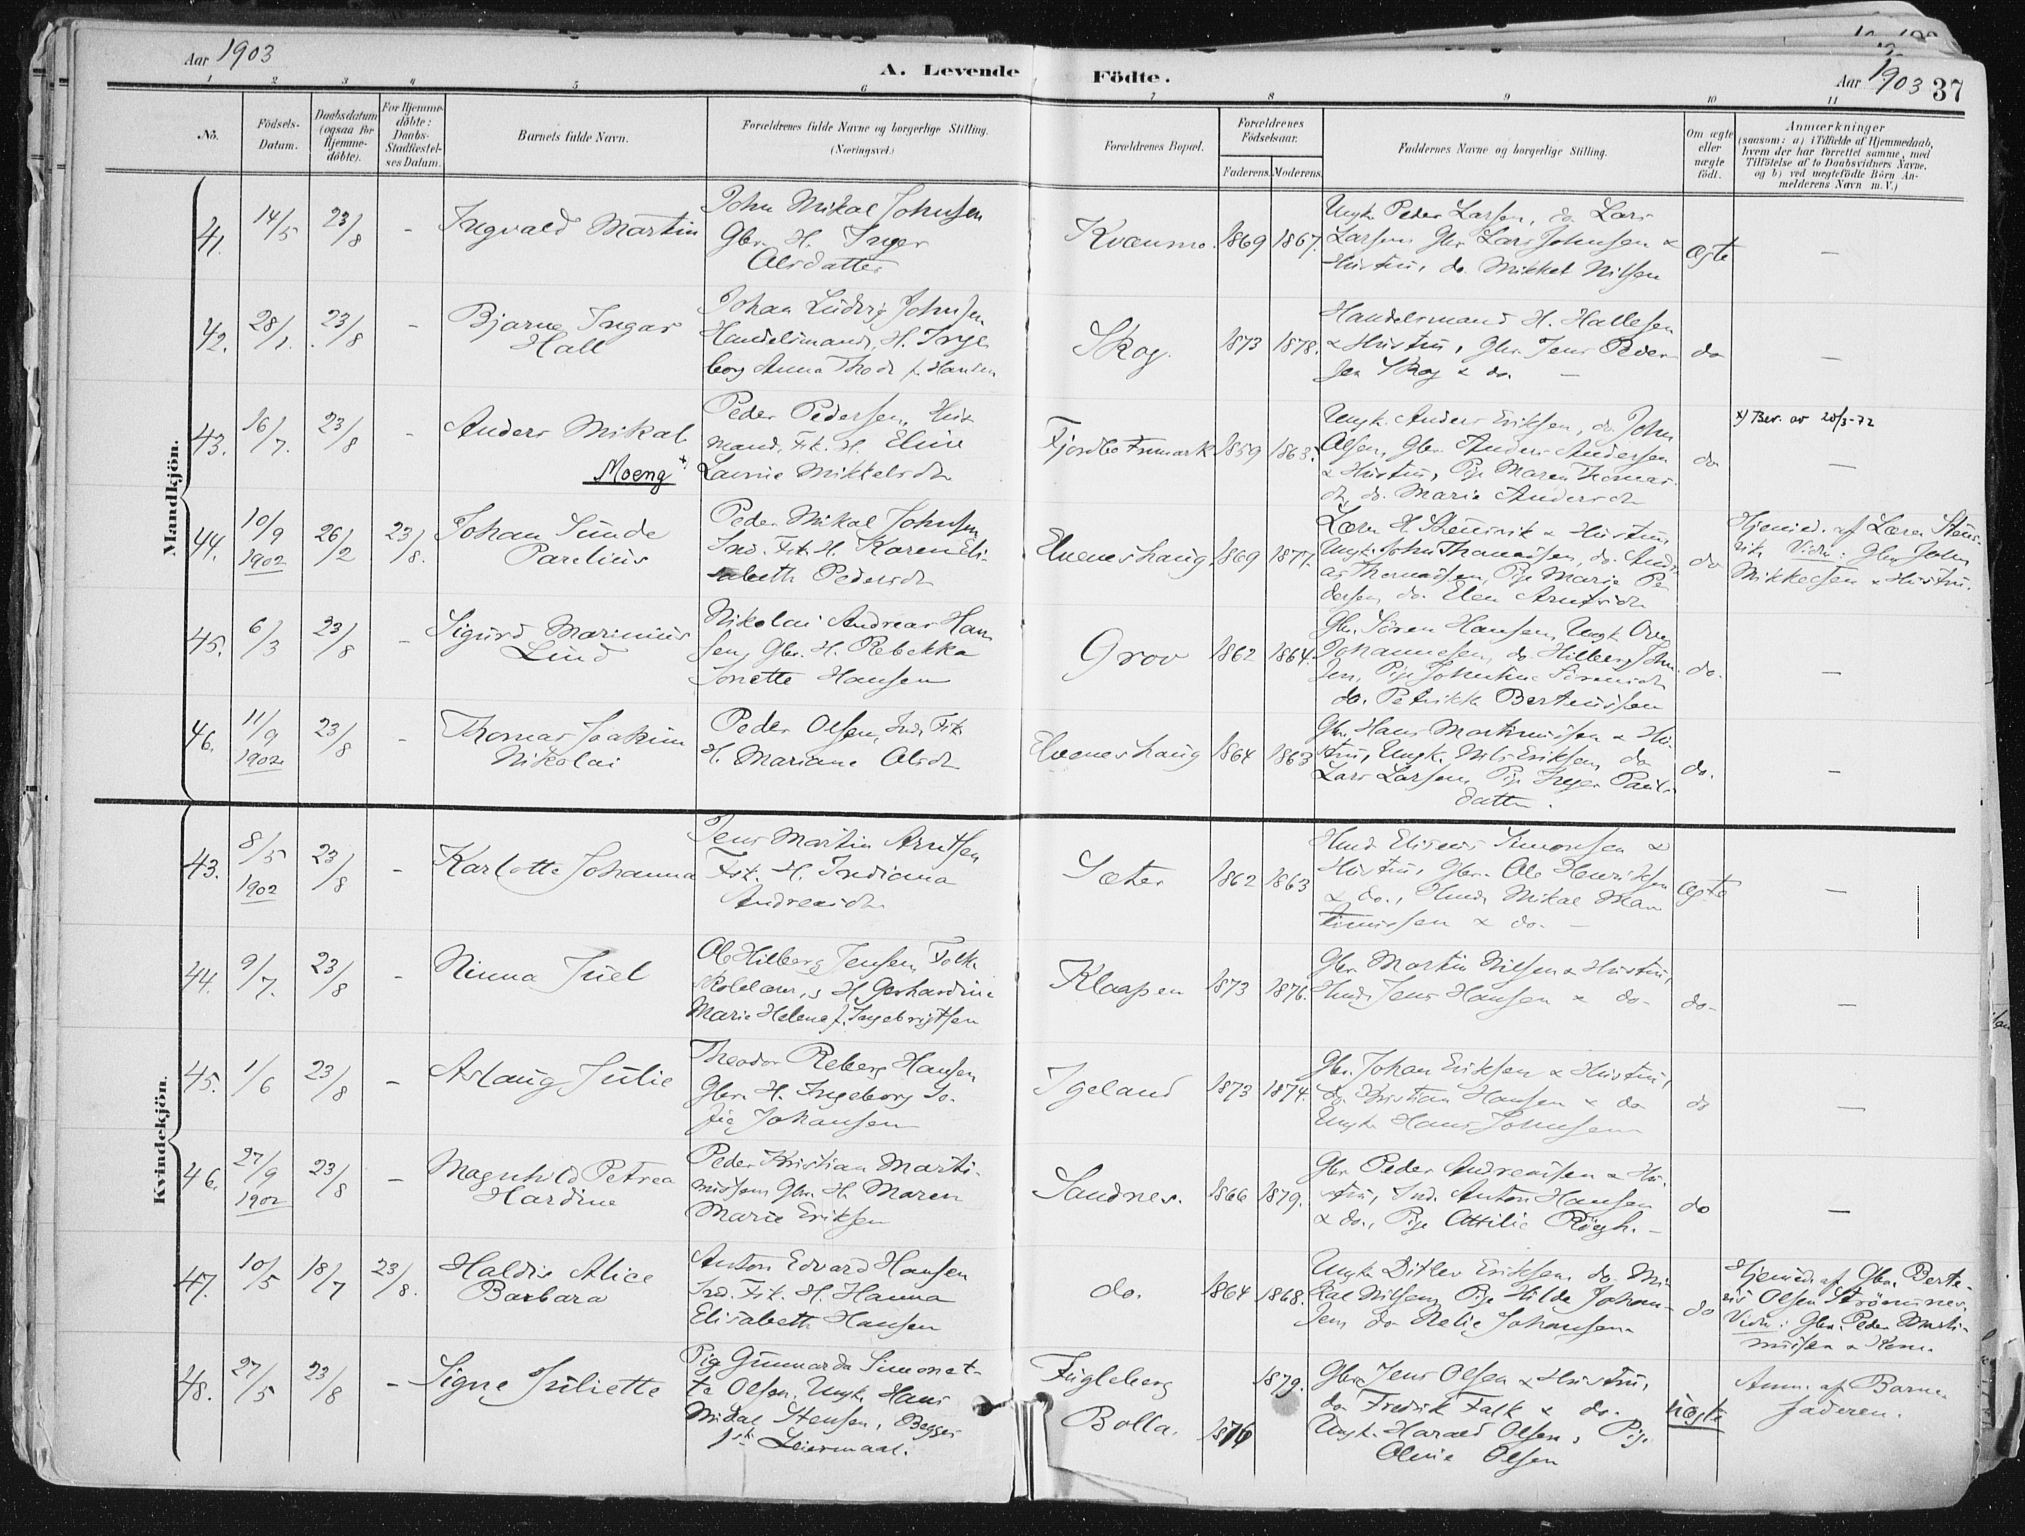 Aar 1903
A. Levende Födte.
Aar 1903 37
1 2 3 4 5 6 7 8 9 10 11
No.
Födsels-Datum.
Daabsdatum (ogsaa for Hjemme-döbte).
For Hjemme-döbte: Daabs-Stadfæstel-ses Datum.
Barnets fulde Navn.
Forældrenes fulde Navne og borgerlige Stilling.
(Næringsvei.)
Forældrenes Bopæl.
Forældrenes Födselsaar.
Faderens. Moderens.
Faddernes Navne og borgerlige Stilling.
Om ægte eller uægte födt.
Anmærkninger
(saasom: a) i Tilfælde af Hjemmedaab,
hvem der har forrettet samme, med
Tilföielse af to Daabsvidners Navne,
og b) ved uægtefödte Börn An-
melderens Navn m. V.)
Mandkjön.
41. 14/5 23/8 - Ingvald Martin
John Mikal Johnsen
Gbr. H. Inger
Olsdatter
Kvænmo. 1869 1867.
Ungk. Peder Larsen, do Lars
Larsen, Gbr Lars Johnsen &
Hustru, do. Mikkel Nilsen
ægte -
42. 28/1. 23/8 - Bjarne Ingar
Hall
Johan Ludvig Johnsen
Handelsmand, H. Inge
borg Anna Thode f. Hansen
Skog. 1873 1878.
Handelsmand H. Hallesen
& Hustru, Gbr. Jens Peder
sen Skog & do. -
do -
43. 16/7. 23/8 - Anders Mikal
Moeng x)
Peder Pedersen, Hus
mand, Fisk. H. Eline
Laurne Mikkelsdt
Fjordbo Fnmark 1859 1863.
Ungk. Anders Eriksen, do. John
Olsen, Gbr Anders Andersen
& Hustru, Pige Maren Thomas
dt, do. Marie Andersdt
do -
x) Bev. av 20/3-72
44. 10/9 1902 26/2 23/8. Johan Sunde
Parelius
Peder Mikal Johnsen
Ind. Fisk. H. Karen Eli-
sabeth Pedersdt
Elveneshaug. 1869 1877.
Lærer H. Stensvik & Hustru
Ungk. John Thomassen, do. Andr
as Thomassen, Pige Marie Pe
dersen, do. Elen Arntsdt
do
Hjemmed. af Lærer Stens-
vik Vidn: Gbr John
Mikkelsen & Hustru.
45. 6/3 23/8 - Sigurd Marinius
Lind
Nikolai Andreas Han
sen, Gbr. H. Rebekka
Jonette Hansen
Grov 1862 1864.
Gbr. Sören Hansen, Ungk Ove
Johannesen, do. Hilberg John
sen, Pige Johntine Sörensdt
do. Petrikke Berteussen
do. -
46. 11/9 1902 23/8 - Thomas Joakim
Nikolai
Peder Olsen, Ind. Fisk
H. Mariane Olsdt
Elveneshaug 1864 1863
Gbr. Hans Martinussen & Hu-
stru, Ungk. Nils Eriksen, do
Lars Larsen, Pige Inger Pauls
datter.
do. -
Kvindekjön.
43. 8/5 1902 23/8 - Karlotte Johanna
Jens Martin Arntsen
Fisk. H. Indiana
Andreasdt
Sæter 1862 1863
Hmd Eliseus Simonsen &
Hustru, Gbr. Ole Henriksen
& do., Hmd. Mikal Mar
tinussen & do. -
ægte -
44. 9/7. 23/8 - Ninna Juel
Ole Hilberg Jensen, Folke
skolelærer, H. Gerhardine
Marie Helene f. Ingebrigtsen
Klaapen 1873 1876.
Gbr Martin Nilsen & Hustru,
Hmd. Jens Hansen & do.
do. -
45. 1/6 23/8 - Aslaug Julie
Theodor Reberg Hansen
Gbr. H. Ingeborg So-
fie Johansen
Igeland 1873 1874.
Gbr. Johan Eriksen & Hustru,
do. Kristian Hansen & do
Ungk Hans Johnsen
do -
46. 27/9 1902 23/8 - Magnhild Petrea
Hardine
Peder Kristian Marti-
nussen Gbr. H. Maren
Marie Eriksen
Sandnes. 1866 1879.
Gbr Peder Andreassen & Hu-
stru, Ind. Anton Hansen
& do., Pige Ottilie Rögh. -
do -
47. 10/5 18/7 23/8. Haldis Alice
Barbara
Anton Edvard Hansen
Ind. Fisk. H. Hanna
Elisabeth Hansen
do. 1864 1868.
Ungk Ditlev Eriksen, do. Mi
kal Nilsen, Pige Hilda Johan-
sen do Nelie Johansen
do
Hjemmed. af Gbr. Berte-
us Olsen Strömnes.
Vidn: Gbr. Peder Marti-
nussen & Kone
48. 27/5 23/8 - Signe Juliette
Pige Gunnarda Simonet-
te Olsen, Ungk. Hans
Mikal Stensen, Begges
1ste Leiermaal.
Fugleberg 1879.
Bolla. 1876
Gbr Jens Olsen & Hustru,
do Fredrik Falk & do.
Ungk. Harald Olsen, Pige
Oline Olsen
uægte
Anm. af Barne
faderen.